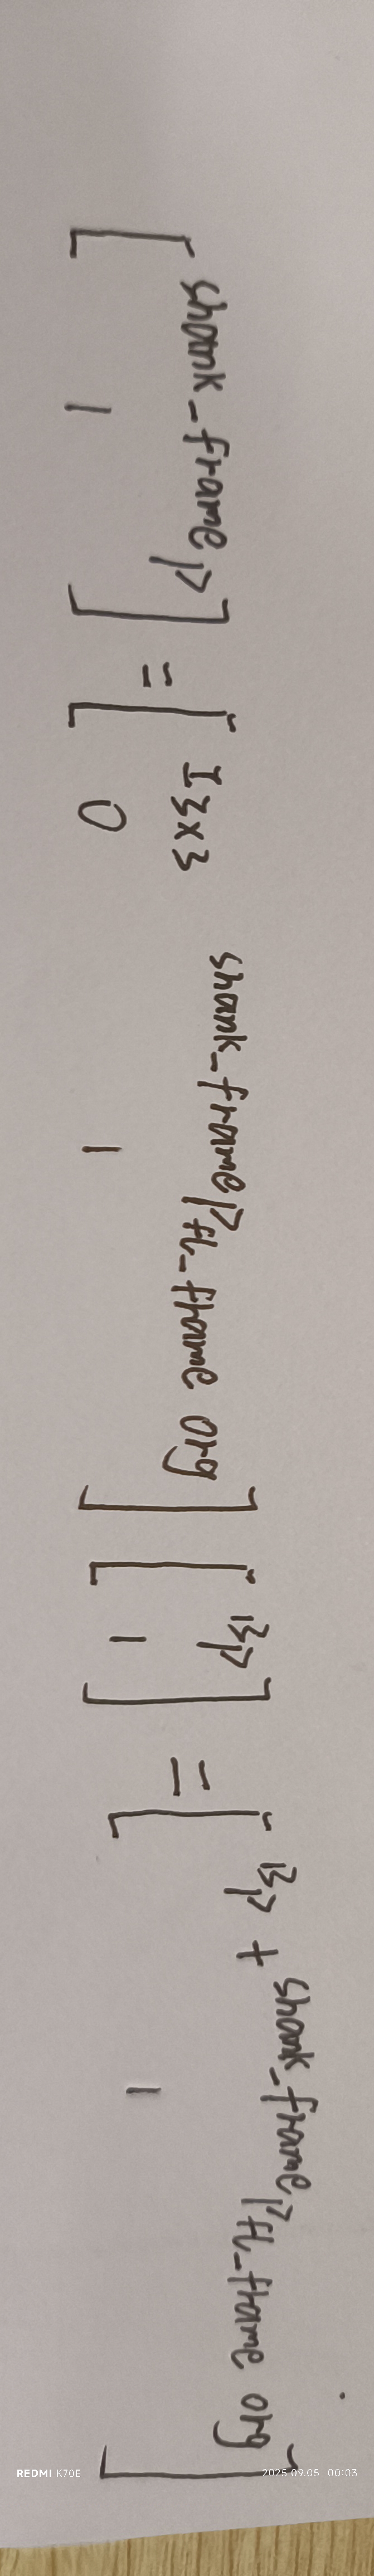 [shank_frame P 1] = [I3x3 shank_frame P ft_frame org 0 1] [BP 1] = [BP + shank_frame P ft_frame org 1]
REDMI K70E
2025.09.05 00:03